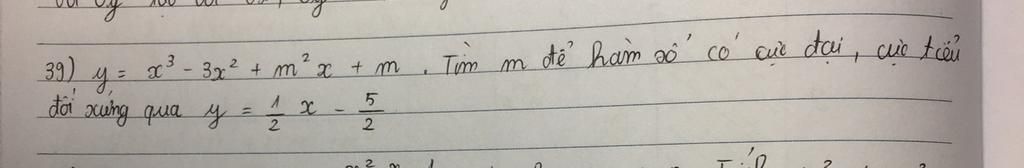 39) y = x³ - 3x² + m²x + m . Tìm m để hàm số có cực đại, cực tiểu
đối xứng qua y = 1/2 x - 5/2